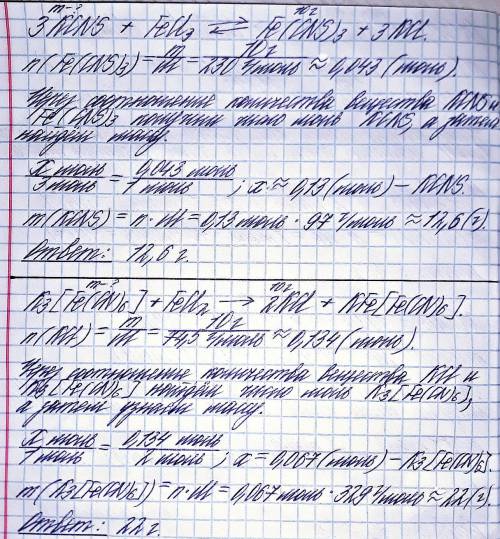 m-?  10г
3KCNS + FeCl₃ ⇄ Fe(CNS)₃ + 3KCl.
n(Fe(CNS)₃) = m/M = 10г/230 г/моль ≈ 0,043 (моль).
Через соотношение количества вещества KCNS и
Fe(CNS)₃ получим число моль KCNS, а затем
найдём массу.
x моль/3 моль = 0,043 моль/1 моль ; x ≈ 0,13 (моль) – KCNS.
m(KCNS) = n · M = 0,13 моль · 97 г/моль ≈ 12,6 (г).
Ответ: 12,6 г.
m-?  10г
K₃[Fe(CN)₆] + FeCl₂ → 2KCl + KFe[Fe(CN)₆].
n(KCl) = m/M = 10г/74,5 г/моль ≈ 0,134 (моль).
Через соотношение количества вещества KCl и
K₃[Fe(CN)₆] найдём число моль K₃[Fe(CN)₆],
а затем узнаем массу.
x моль/1 моль = 0,134 моль/2 моль ; x = 0,067 (моль) – K₃[Fe(CN)₆].
m(K₃[Fe(CN)₆]) = n · M = 0,067 моль · 329 г/моль ≈ 22 (г).
Ответ: 22 г.